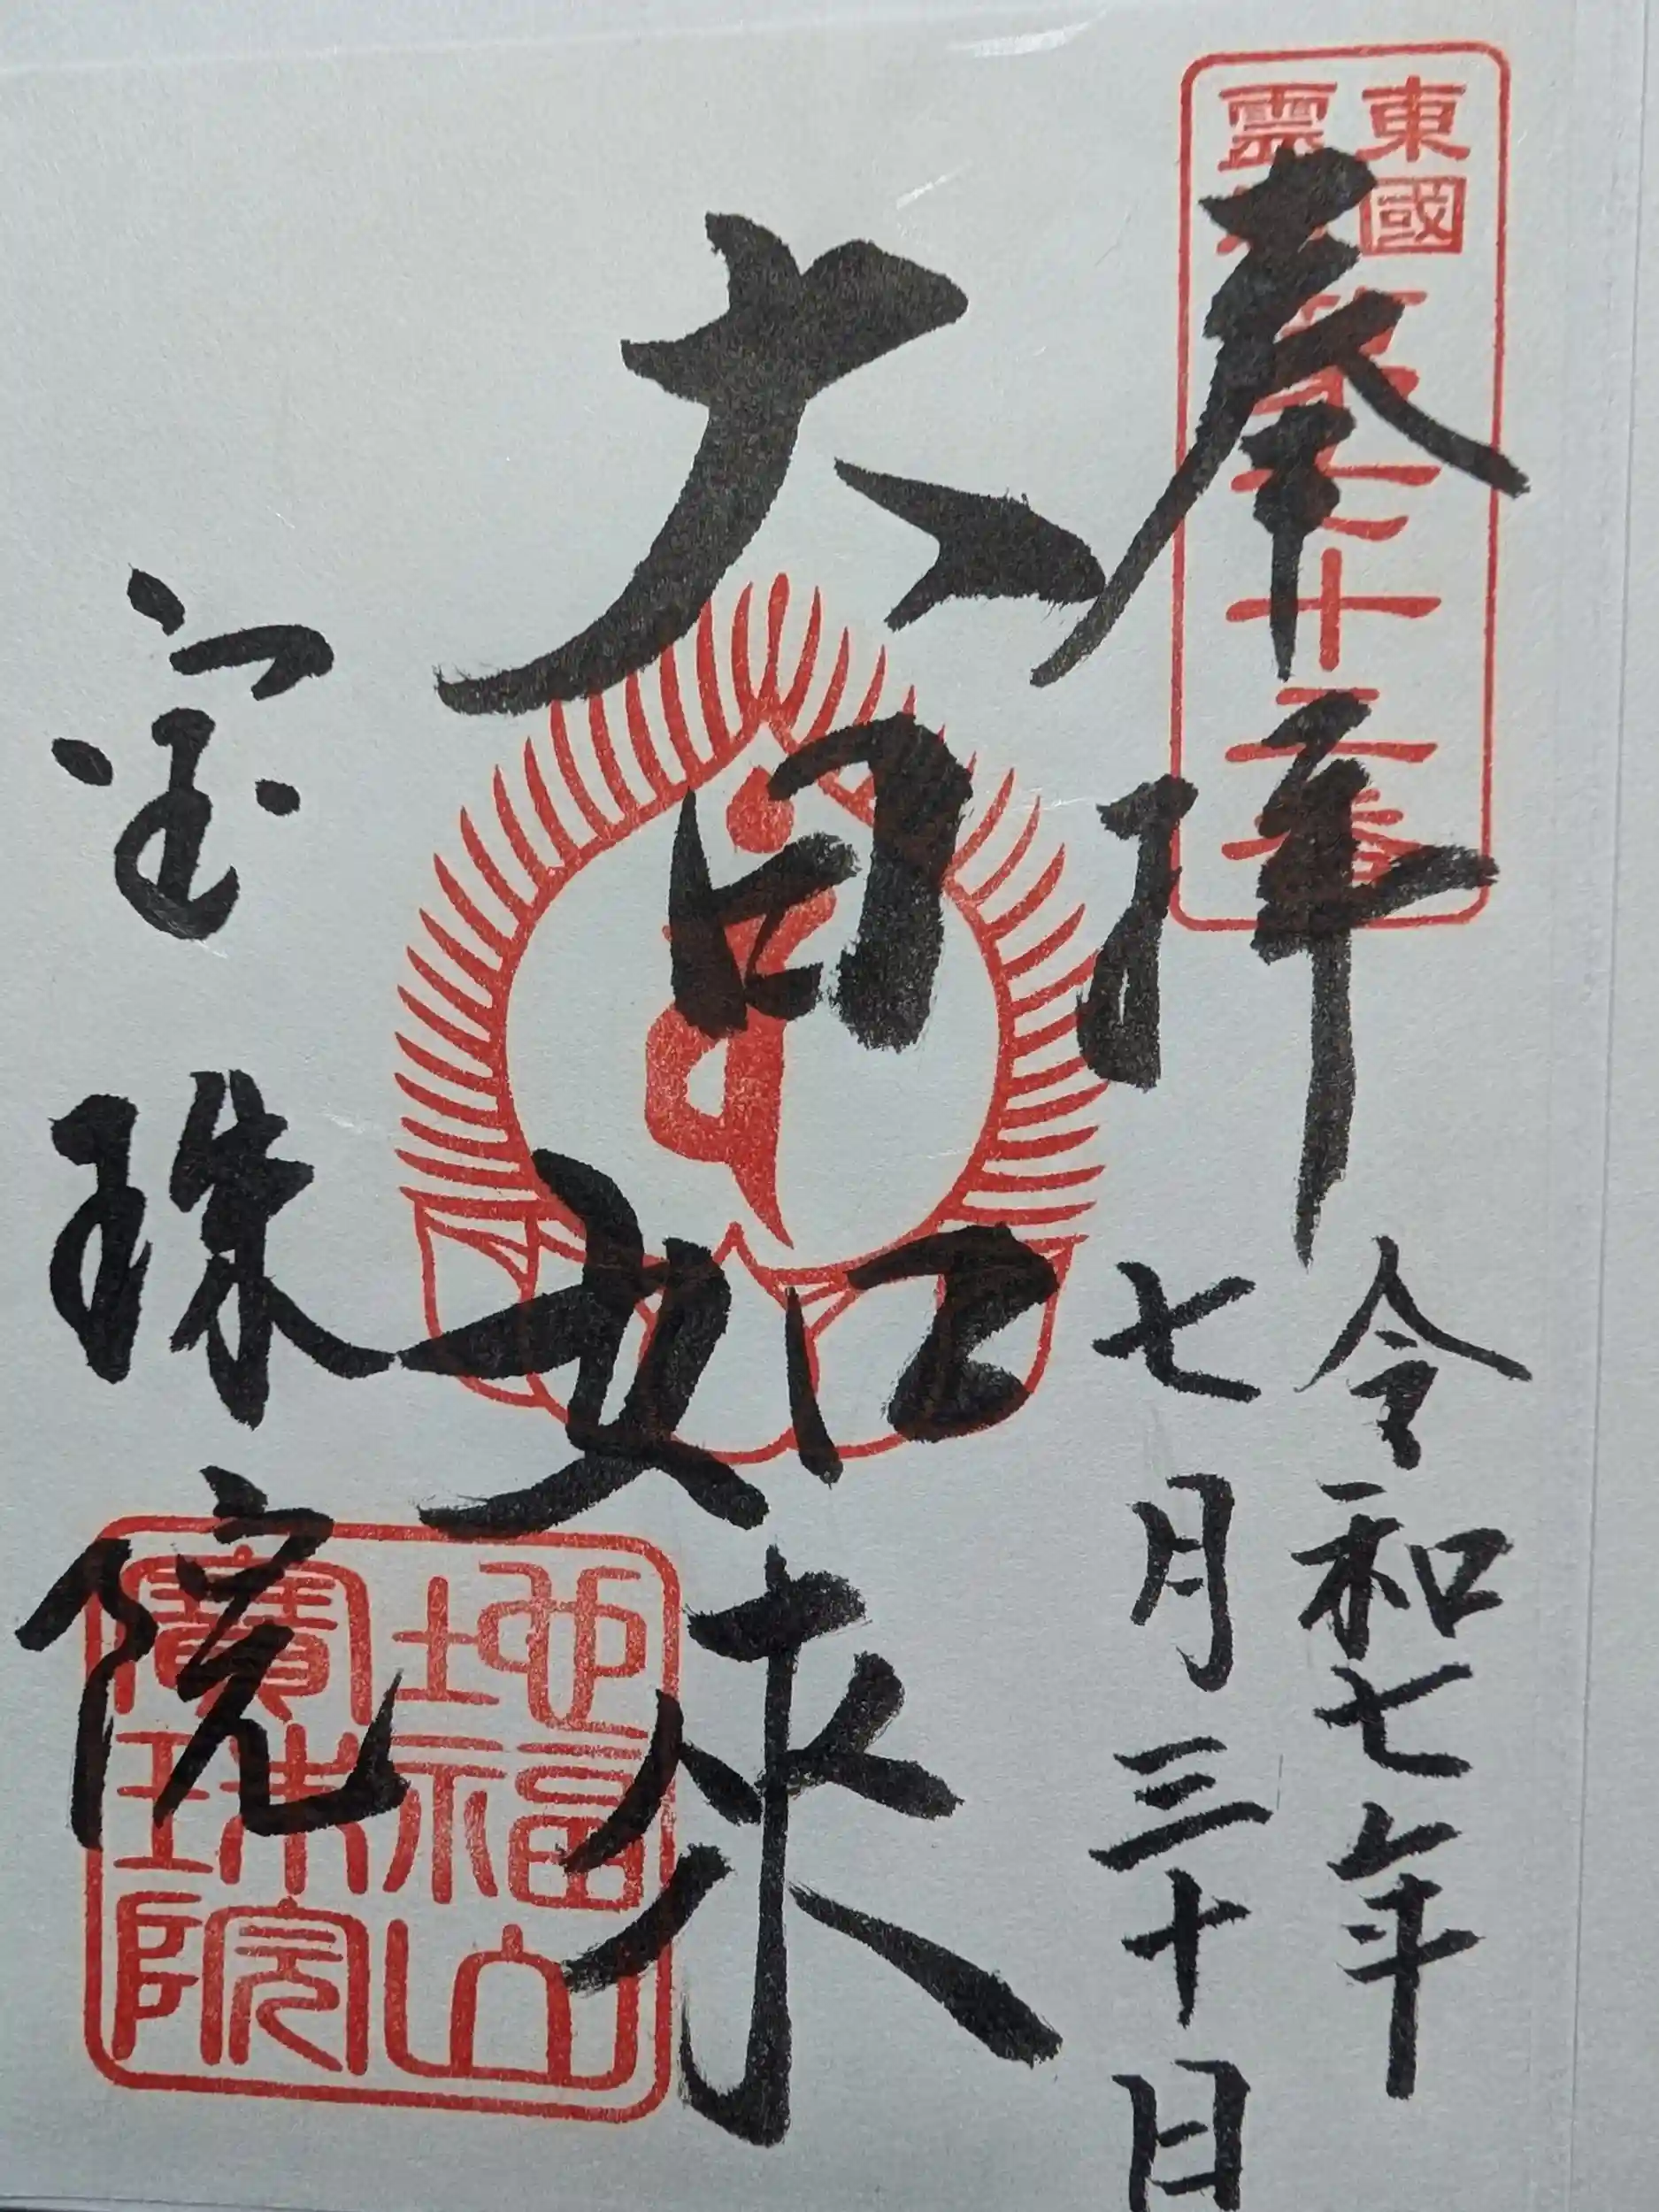 奉拝
令和七年
七月三十日
大日如来
宝珠院
東國
霊
第七十二番
地福山
寶珠院